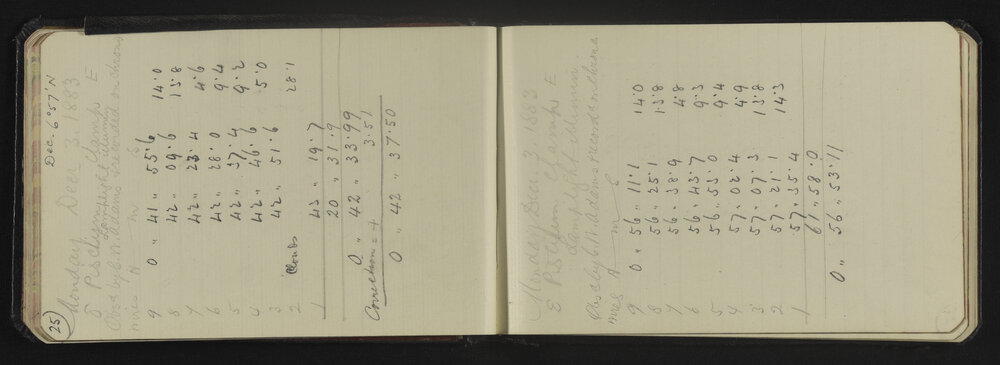 25
Dec. 6°57'N
Monday Decr 3. 1883
δ Piscium Clamp E
Lamplight illumin
Obsd by E.H. Adams recorded on chrono
wires H m S
9 0 " 41 " 55.6 14.0
8 42 " 09.6 13.8
7 42 " 23.4 4.6
6 42 " 28.0 9.4
5 42 " 37.4 9.2
4 42 " 46.6 5.0
3 42 " 51.6
2 Clouds 28.1
1 43 " 19.7
20 " 31.9
0 " 42 " 33.99
Correction = + 3.51
0 " 42 " 37.50
Monday Decr. 3. 1883
ε Piscium Clamp E
Lamplight illumin.
Obsd by E.H. Adams record on chrono
wires H m S
9 0 " 56 " 11.1 14.0
8 56 " 25.1 13.8
7 56 " 38.9 4.8
6 56 " 43.7 9.3
5 56 " 53.0 9.4
4 57 " 02.4 4.9
3 57 " 07.3 13.8
2 57 " 21.1 14.3
1 57 " 35.4
61 " 58.0
0 " 56 " 53.11